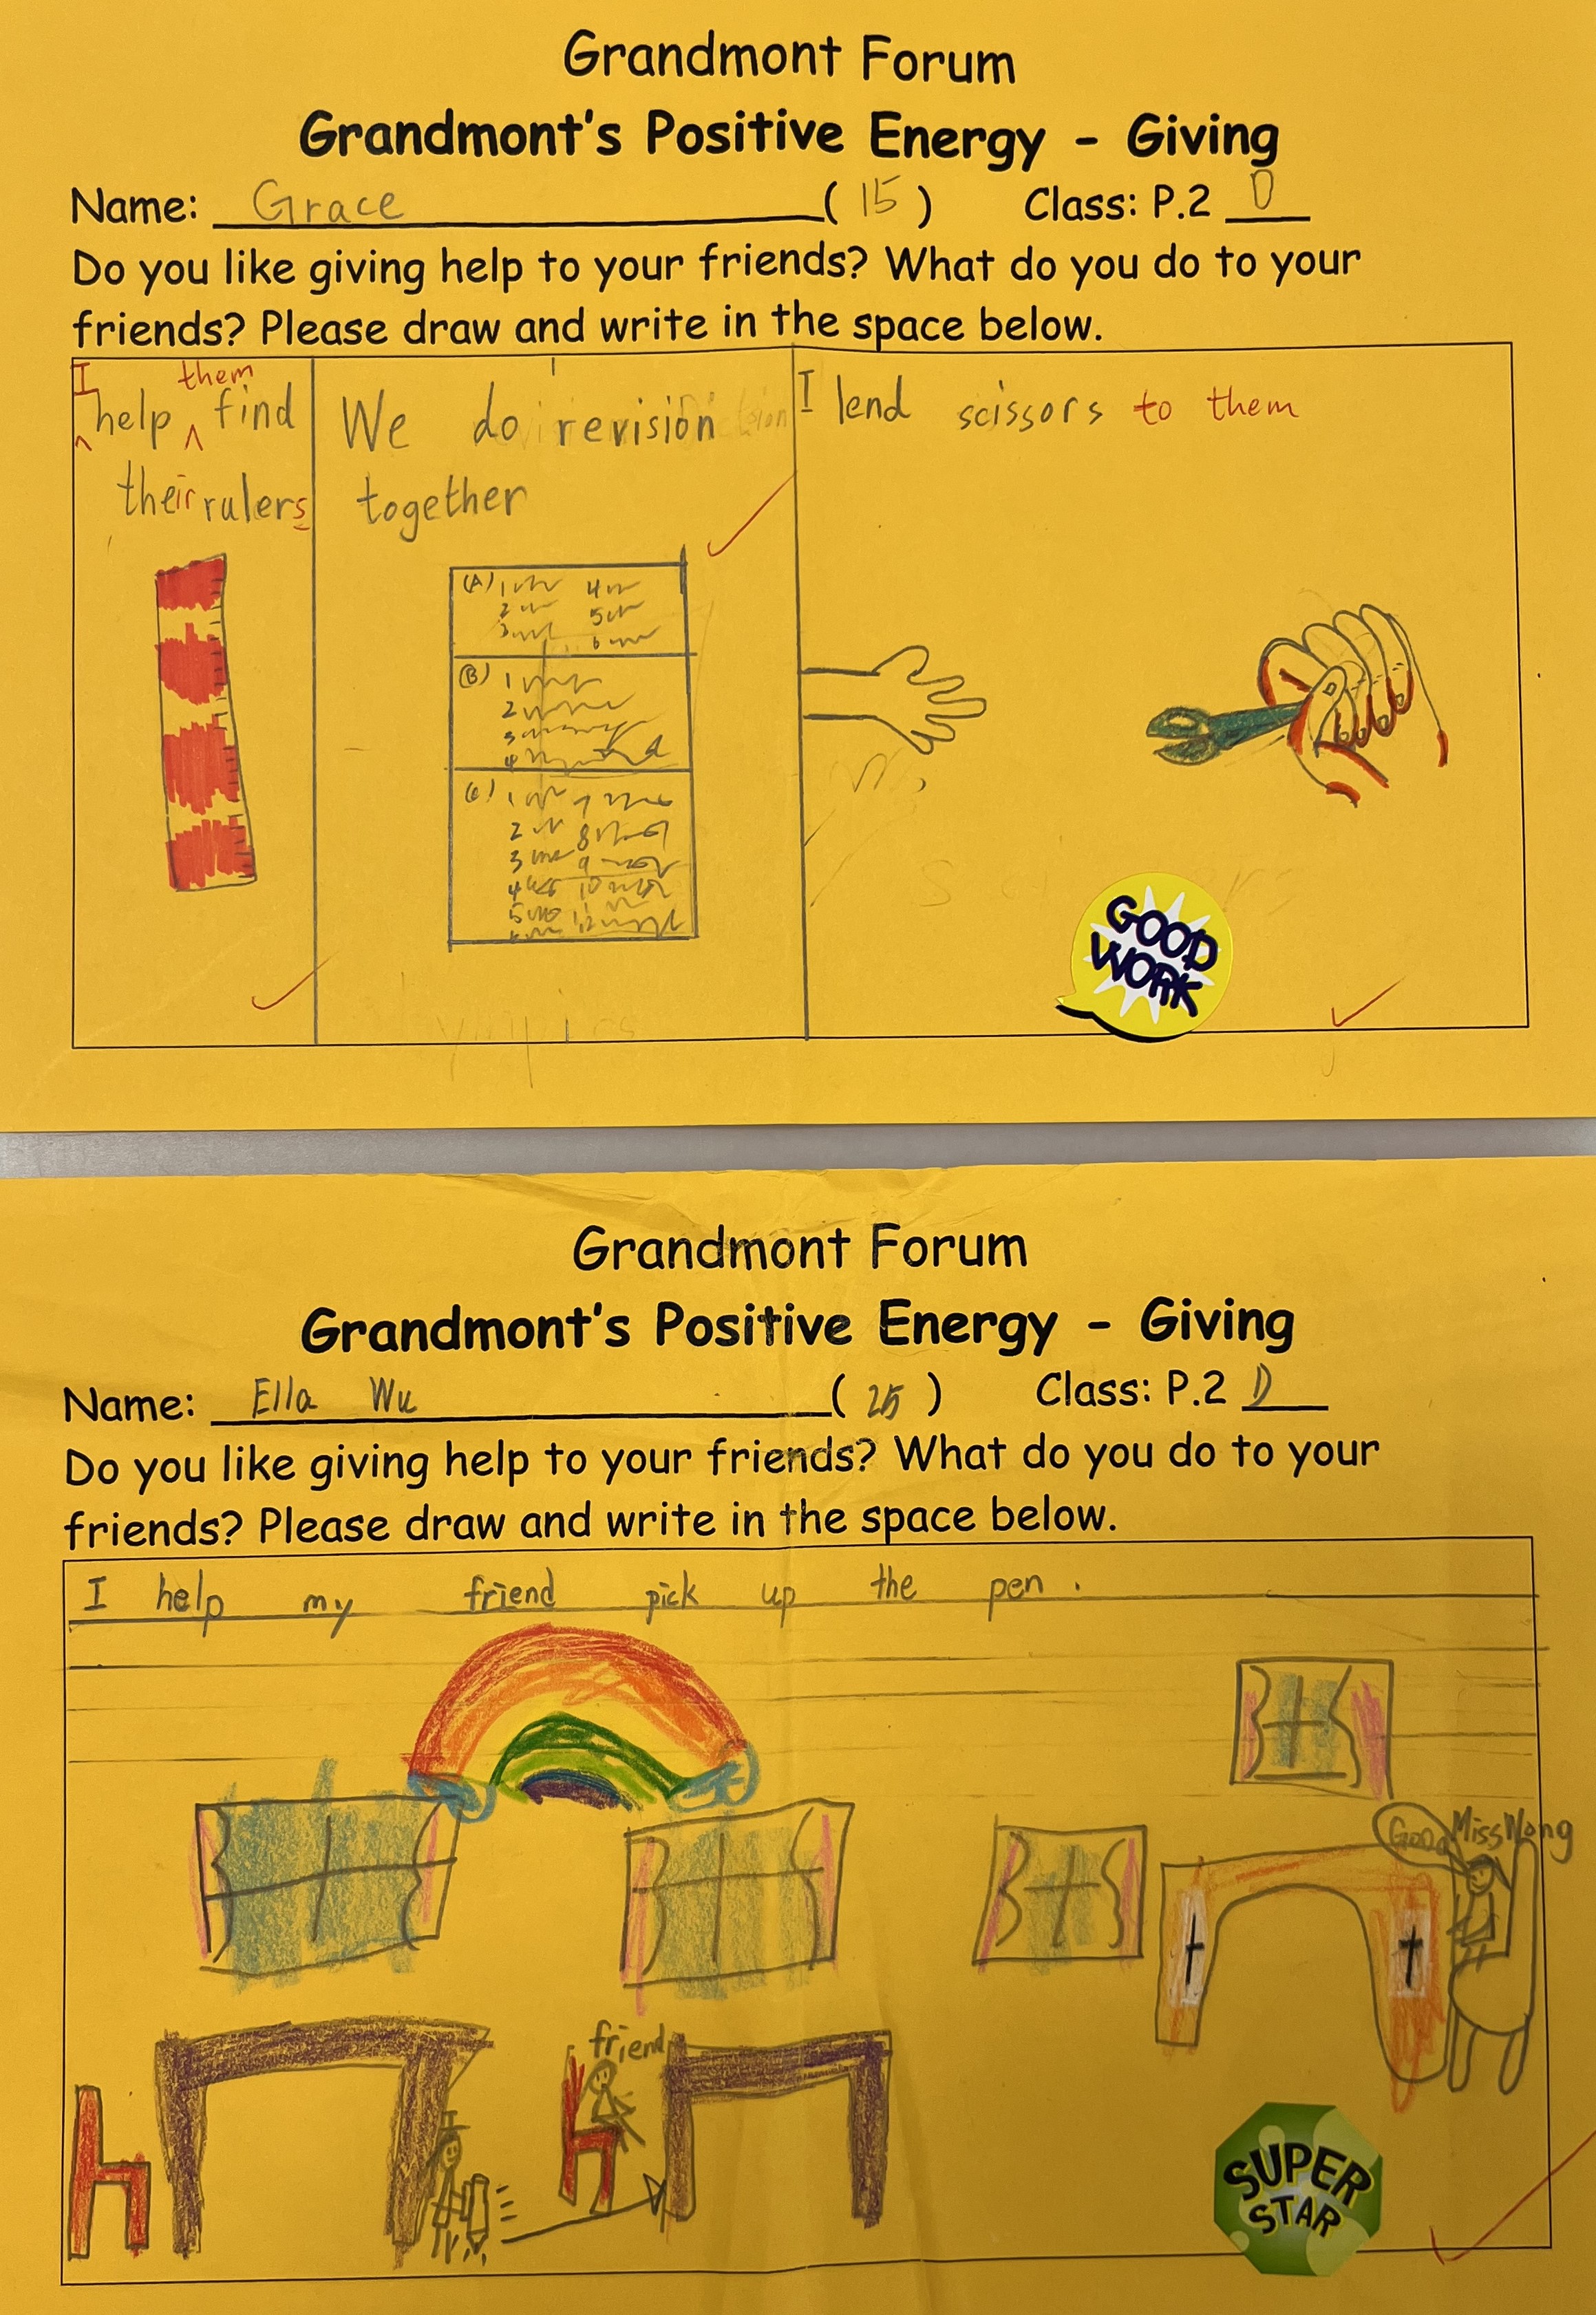 Grandmont Forum
Grandmont's Positive Energy - Giving
Name: Grace (15) Class: P.2 D
Do you like giving help to your friends? What do you do to your
friends? Please draw and write in the space below.
I help them find
their rulers
We do revision
together
(A) 1 4
2 5
3 6
(B) 1
2
3
4
(C) 1 7
2 8
3 9
4 10
5 11
6 12
I lend scissors to them
GOOD
WORK
Grandmont Forum
Grandmont's Positive Energy - Giving
Name: Ella Wu (25) Class: P.2 D
Do you like giving help to your friends? What do you do to your
friends? Please draw and write in the space below.
I help my friend pick up the pen.
Good
Miss Wong
friend
SUPER
STAR